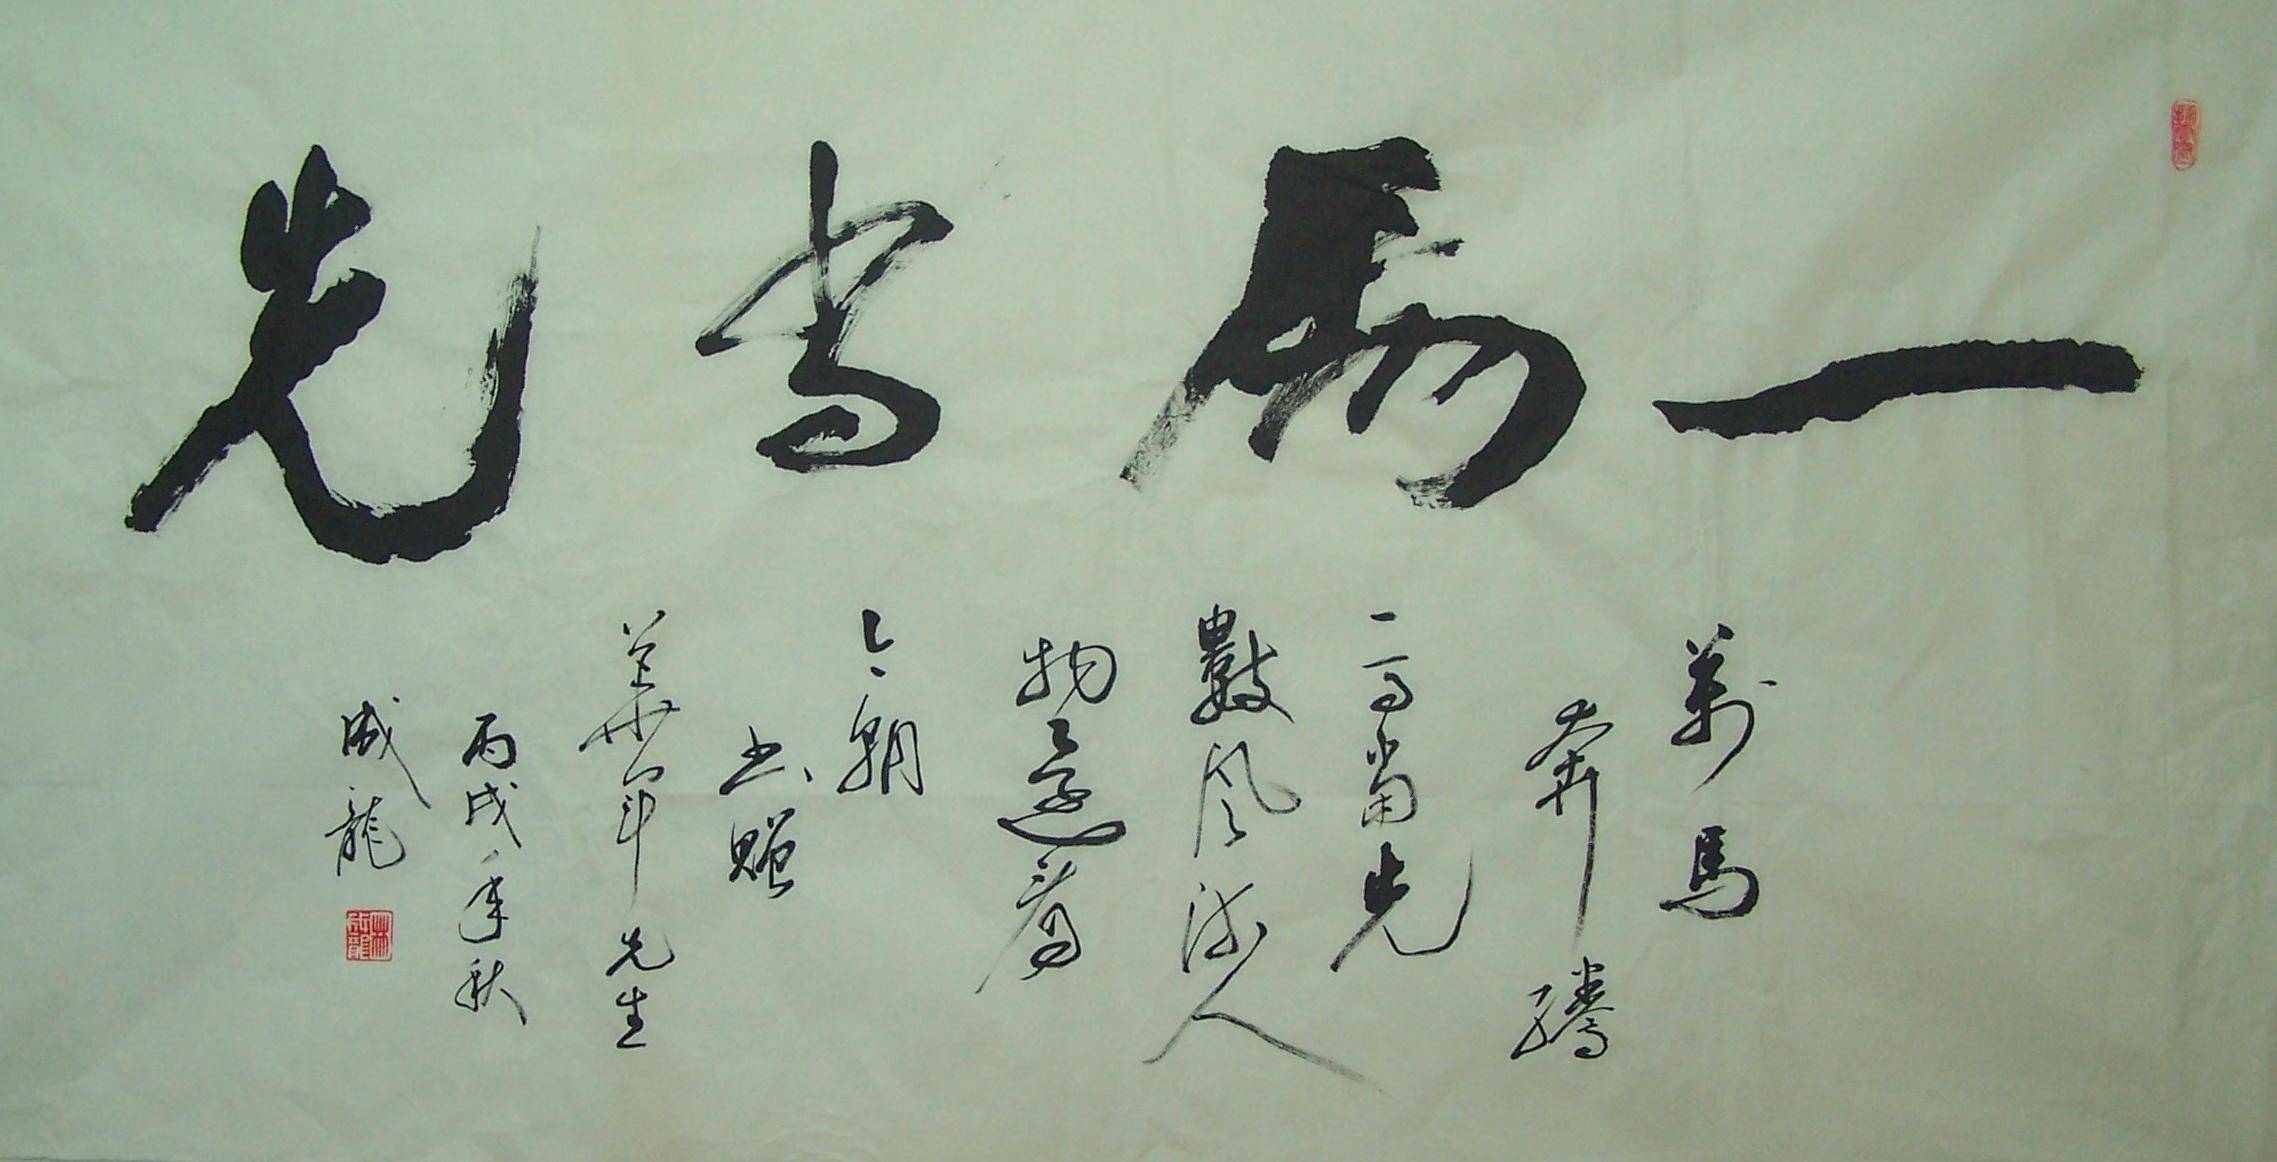 一馬当先
萬馬
奔騰
一馬當先
數風流人
物還看
今朝
書贈
華軍先生
丙戌年秋
成龍